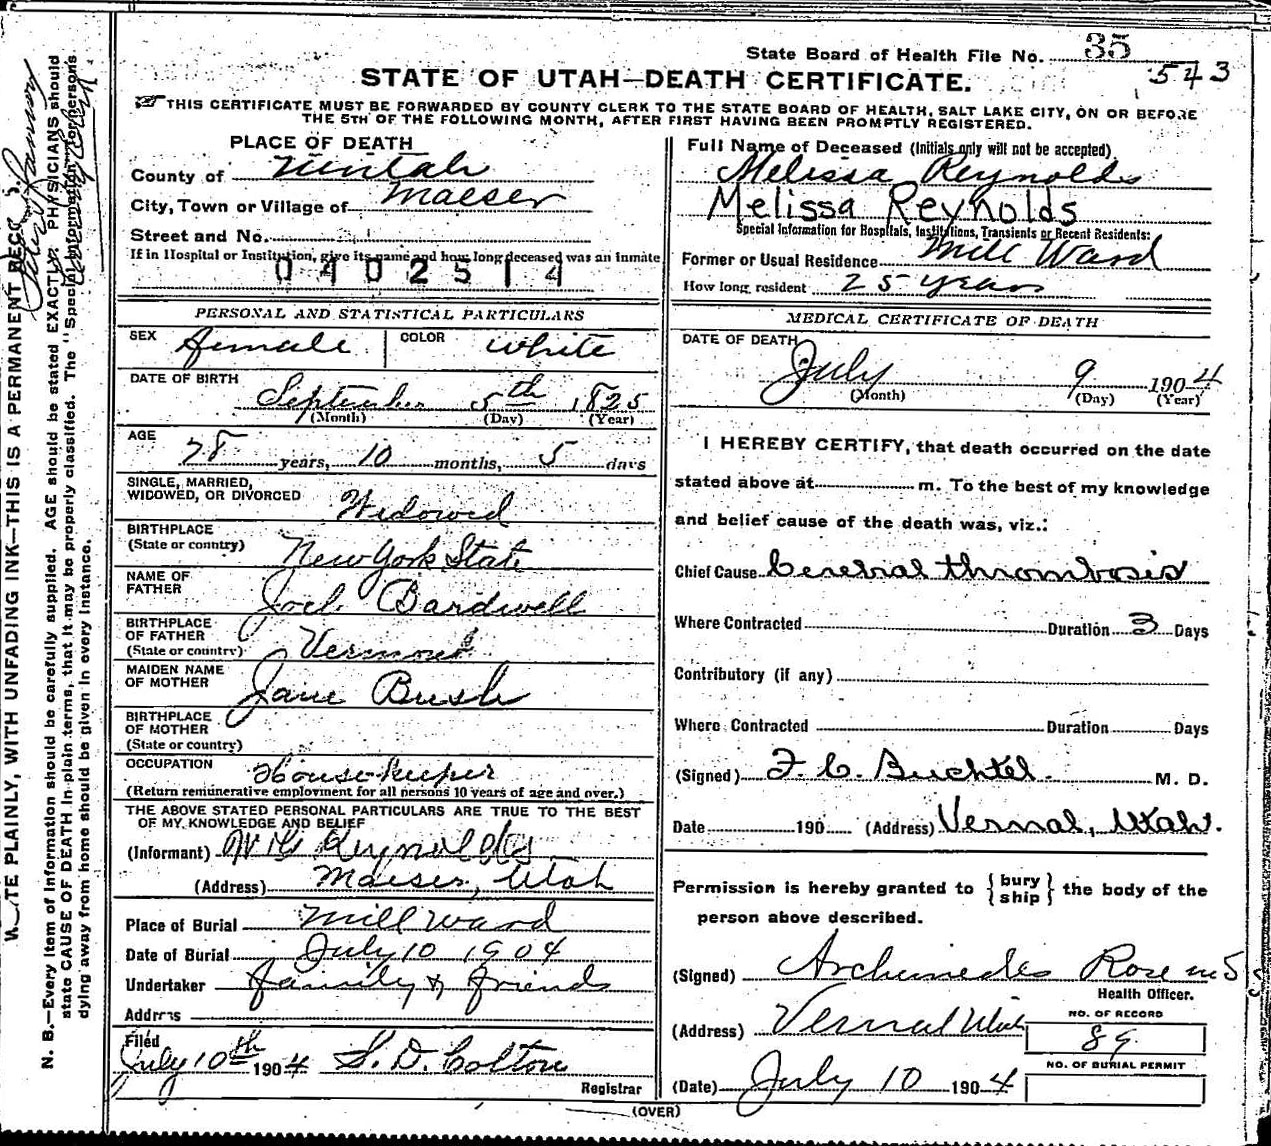 State Board of Health File No. 35
543
STATE OF UTAH—DEATH CERTIFICATE.
THIS CERTIFICATE MUST BE FORWARDED BY COUNTY CLERK TO THE STATE BOARD OF HEALTH, SALT LAKE CITY, ON OR BEFORE
THE 5TH OF THE FOLLOWING MONTH, AFTER FIRST HAVING BEEN PROMPTLY REGISTERED.
PLACE OF DEATH
County of Uintah
City, Town or Village of Maeser
Street and No.
If in Hospital or Institution, give its name and how long deceased was an inmate
0402514
PERSONAL AND STATISTICAL PARTICULARS
SEX Female COLOR White
DATE OF BIRTH
September 5th 1825
(Month) (Day) (Year)
AGE
78 years, 10 months, 5 days
SINGLE, MARRIED,
WIDOWED, OR DIVORCED Widowed
BIRTHPLACE
(State or country) New York State
NAME OF
FATHER Joel Bardwell
BIRTHPLACE
OF FATHER
(State or country) Vermont
MAIDEN NAME
OF MOTHER Jane Bush
BIRTHPLACE
OF MOTHER
(State or country)
OCCUPATION House keeper
(Return remunerative employment for all persons 10 years of age and over.)
THE ABOVE STATED PERSONAL PARTICULARS ARE TRUE TO THE BEST
OF MY KNOWLEDGE AND BELIEF
(Informant) W G Reynolds
(Address) Maeser, Utah
Place of Burial Mill Ward
Date of Burial July 10 1904
Undertaker Family & friends
Address
Filed
July 10th 1904 S. D. Colton
Registrar
Full Name of Deceased (Initials only will not be accepted)
Melissa Reynolds
Melissa Reynolds
Special Information for Hospitals, Institutions, Transients or Recent Residents:
Former or Usual Residence Mill Ward
How long resident 25 years
MEDICAL CERTIFICATE OF DEATH
DATE OF DEATH
July 9 1904
(Month) (Day) (Year)
I HEREBY CERTIFY, that death occurred on the date
stated above at m. To the best of my knowledge
and belief cause of the death was, viz.:
Chief Cause Cerebral thrombosis
Where Contracted Duration 3 Days
Contributory (if any)
Where Contracted Duration Days
(Signed) F. C. Buchtel. M. D.
Date 190 (Address) Vernal, Utah.
Permission is hereby granted to { bury ship } the body of the
person above described.
(Signed) Archimedes Rose
Health Officer.
(Address) Vernal Utah
NO. OF RECORD
89
NO. OF BURIAL PERMIT
(Date) July 10 1904
(OVER)
WRITE PLAINLY, WITH UNFADING INK—THIS IS A PERMANENT RECO
N. B.—Every item of information should be carefully supplied. AGE should be stated EXACTLY. PHYSICIANS should
state CAUSE OF DEATH in plain terms, that it may be properly classified. The "Special Information" for persons
dying away from home should be given in every instance.